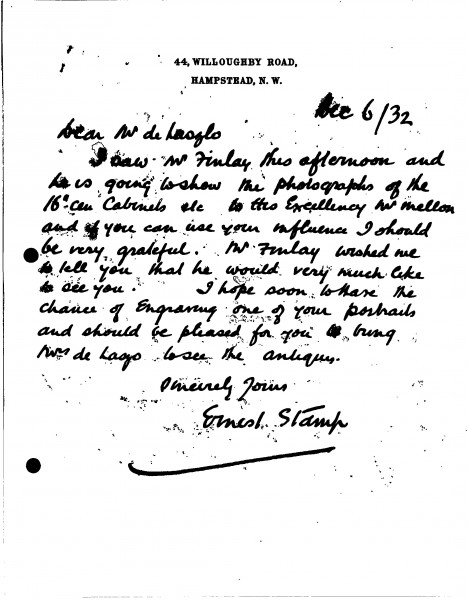 44, WILLOUGHBY ROAD,
HAMPSTEAD, N. W.
Dec 6/32
Dear Mr de Laszlo
I saw Mr Finlay this afternoon and
he is going to show the photographs of the
16th cen Cabinets etc to His Excellency Mr Mellon
and if you can use your influence I should
be very grateful. Mr Finlay wished me
to tell you that he would very much like
to see you. I hope soon to have the
chance of Engraving one of your portraits
and should be pleased for you to bring
Mrs de Laszo to see the antiques.
Sincerely Yours
Ernest. Stamp